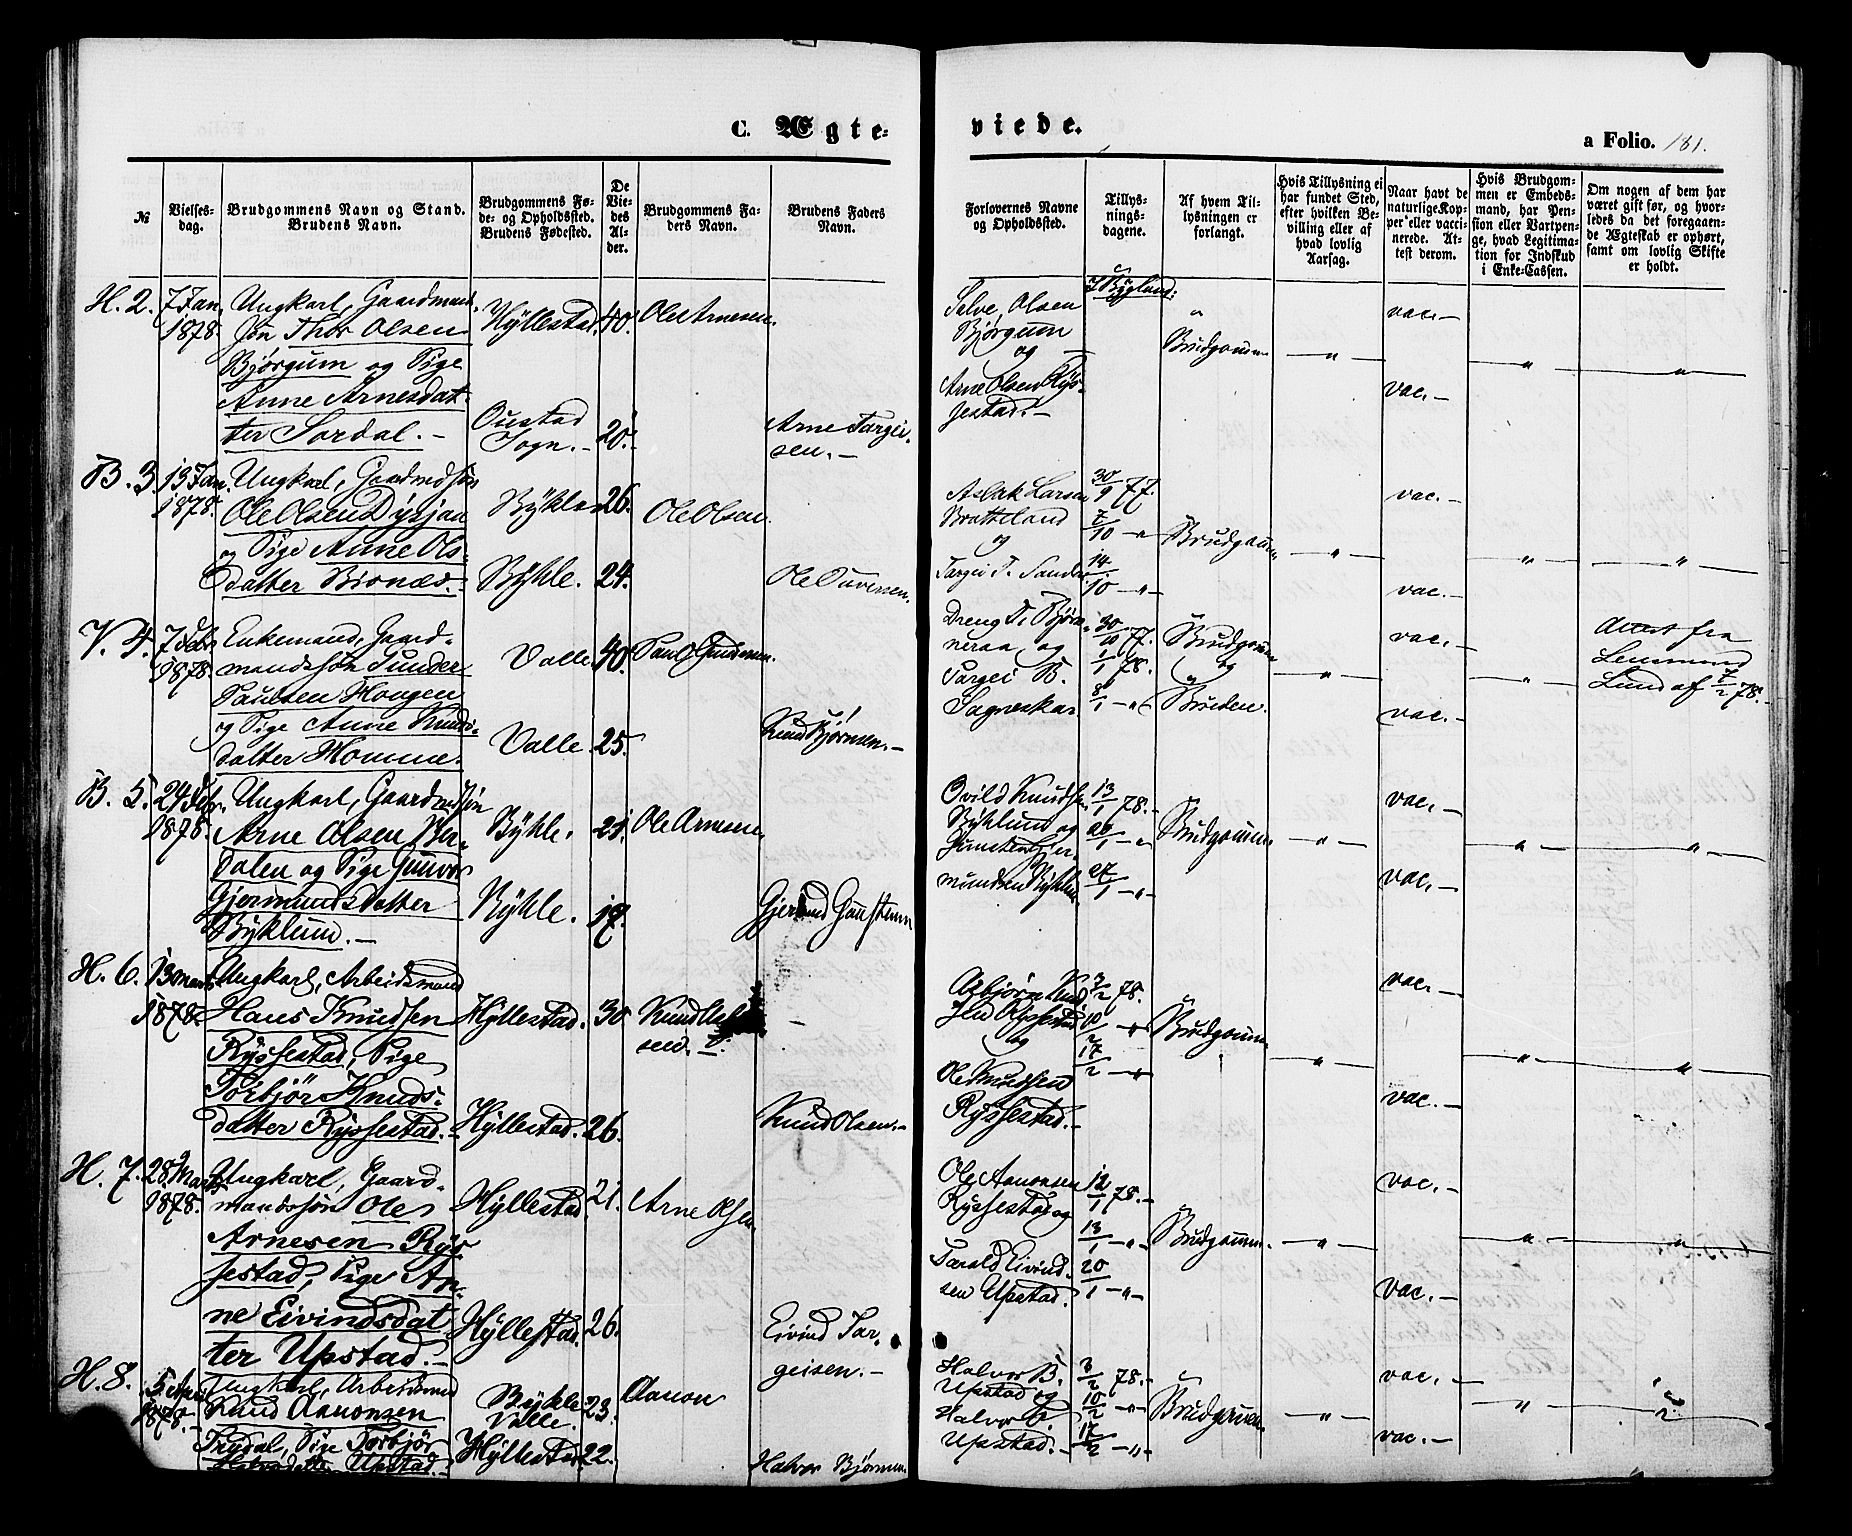 C. Ægte-
viede.
a Folio. 181.
№
Vielses-
dag.
Brudgommens Navn og Stand.
Brudens Navn.
Brudgommens Fø-
de- og Opholdssted.
Brudens Fødested.
De
Vie-
des
Al-
der.
Brudgommens Fa-
ders Navn.
Brudens Faders
Navn.
Forlovernes Navne
og Opholdssted.
Tillys-
nings-
dagene.
Af hvem Til-
lysningen er
forlangt.
Hvis Tillysning ei
har fundet Sted,
efter hvilken Be-
villing eller af
hvad lovlig
Aarsag.
Naar havt de
naturlige Kop-
per eller vacci-
nerede. At-
test derom.
Hvis Brudgom-
men er Embeds-
mand, har Pen-
sion eller Vartpen-
ge, hvad Legitima-
tion for Indskud
i Enke-Cassen.
Om nogen af dem har
været gift før, og hvor-
ledes da det foregaaen-
de Ægteskab er ophørt,
samt om lovlig Skifte
er holdt.
H. 2. 7 Jan. 1878.
Ungkarl, Gaardmand
Jøn Thor Olsen
Bjørgum og Pige
Anne Arnesdat-
ter Sordal. -
Hyllestad. 40. Ole Arnesen.
Oustad
Sogn. - 20. Arne Targei-
sen. -
Salve Olsen
Bjørgum
og
Arne Olsen Rys-
sestad. -
I Bygland:
Brudgommen
vac. -
vac. -
B. 3. 13 Jan. 1878.
Ungkarl, Gaardmdsøn
Ole Olsen Dysjan
og Pige Anne Ols-
datter Bionæs. -
Bykle 26. Ole Olsen.
Bykle. 24.
Aslak Larsen
Bratteland
og
Targei T. Sandn
30/9 77.
7/10 - " -
14/10 - " -
Brudgommen
vac. -
vac. -
V. 4. 7 Febr 1878.
Enkemand, Gaard-
mandssøn Gunder
Paulsen Haugen
og Pige Anne Knuds-
datter Homme. -
Valle 40. Paul Gundersen.
Valle. 25. Knud Bjørnsen. -
Dreng O. Bjørn-
neraa og
Targei B.
Sagneskar
30/10 77.
1/1 78.
8/1 - "
Brudgommen
og
Bruden.
vac. -
vac. -
Attest fra
Lensmand
Lund af 7/2 78. -
B. 5. 24 Febr. 1878.
Ungkarl, Gaardmdsøn
Arne Olsen Ber-
dalen og Pige Gunvor
Gjermundsdatter
Byklum. -
Bykle. 21. Ole Arnesen
Bykle. 17. Gjermund Gunstensen
Ovild Knudsen
Byklum og
Gunsten Gjer-
mundsen Byklum
13/1 78. -
20/1 - "
27/1 - " -
Brudgommen
vac. -
vac. -
H. 6. 13 Marts 1878.
Ungkarl, Arbeidsmand
Hans Knudsen
Ryssestad, Pige
Torbjør Knuds-
datter Ryssestad. -
Hyllestad. 30 Knud
sen.
Hyllestad. 26. Knud Olsen. -
Asbjørn Knud-
sen Ryssestad
og
Ole Knudsen
Ryssestad. -
3/2 78.
10/2 - "
17/2 - "
Brudgommen
vac. -
vac. -
H. 7. 28 Marts 1878.
Ungkarl, Gaard-
mandssøn Ole
Arnesen Rys-
sestad, Pige An-
ne Eivindsdat-
ter Upstad. -
Hyllestad. 21. Arne Olsen
Hyllestad. 26. Eivind Tar-
geisen. -
Ole Aanonsen
Ryssestad og
Tarald Eivind-
sen Upstad.
12/1 78. -
13/1 - " -
20/1 - " -
Brudgommen.
vac. -
vac. -
H. 8. 5 April 1878.
Ungkarl, Arbeidsmand
Knud Aanonsen
Trydal, Pige Torbjør
Halvorsdatter Upstad. -
Bykle
Valle. 23. Aanon
Hyllestad 22. Halvor Bjørnsen.
Halvor B.
Upstad og
Halvor O.
Upstad. -
3/2 78. -
10/2 - "
17/2 - " -
Brudgommen
vac. -
vac. -